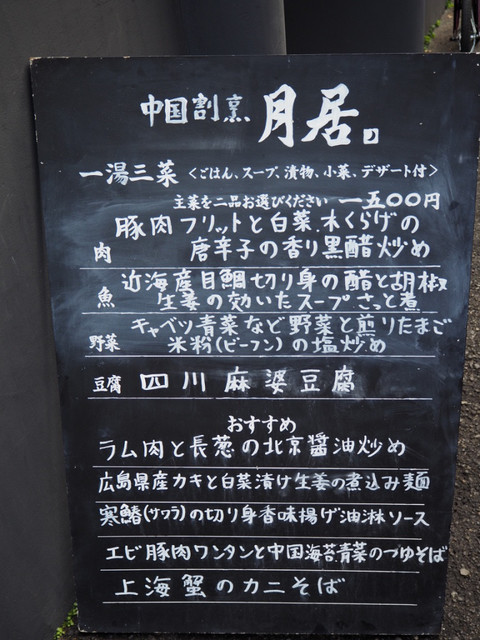 中国割烹 月居。
一湯三菜 〈ごはん、スープ、漬物、小菜、デザート付〉
主菜を二品お選びください 一五〇〇円
豚肉フリットと白菜、木くらげの
肉 唐辛子の香り黒醋炒め
近海産目鯛切り身の醋と胡椒
魚 生姜の効いたスープさっと煮
キャベツ青菜など野菜と煎りたまご
野菜 米粉(ビーフン)の塩炒め
豆腐 四川麻婆豆腐
おすすめ
ラム肉と長葱の北京醤油炒め
広島県産カキと白菜漬け生姜の煮込み麺
寒鰆(サワラ)の切り身香味揚げ油淋ソース
エビ豚肉ワンタンと中国海苔青菜のつゆそば
上海蟹のカニそば